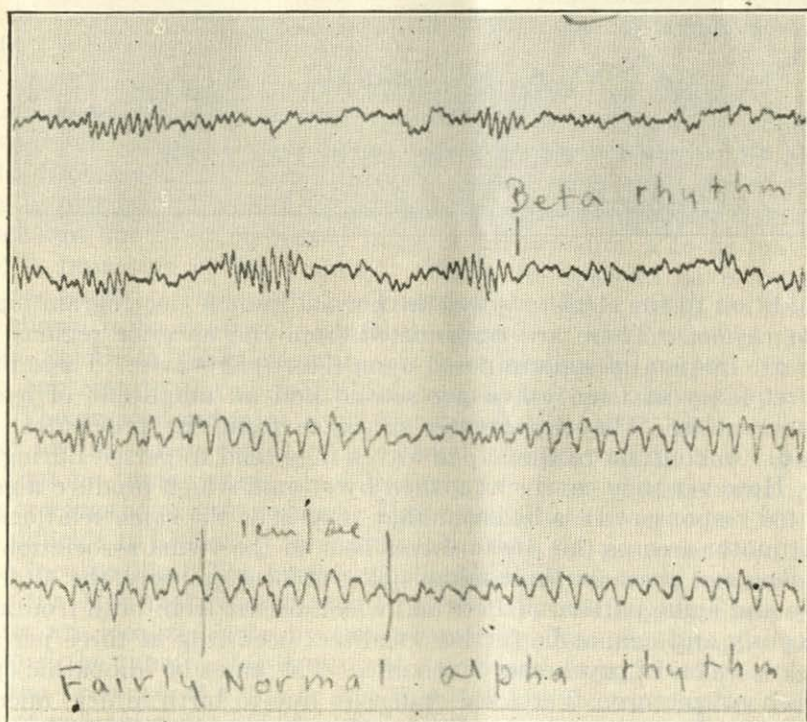 Beta rhythm
1cm/sec
Fairly Normal alpha rhythm